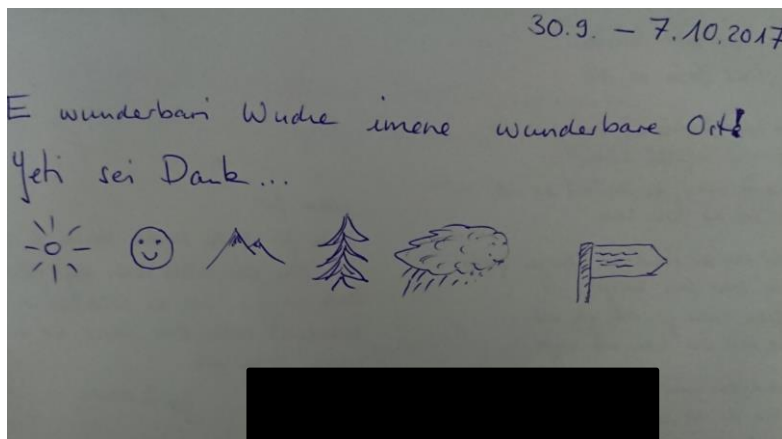 30.9. – 7.10.2017
E wunderbari Wuche imene wunderbare Ort!
Yeti sei Dank...